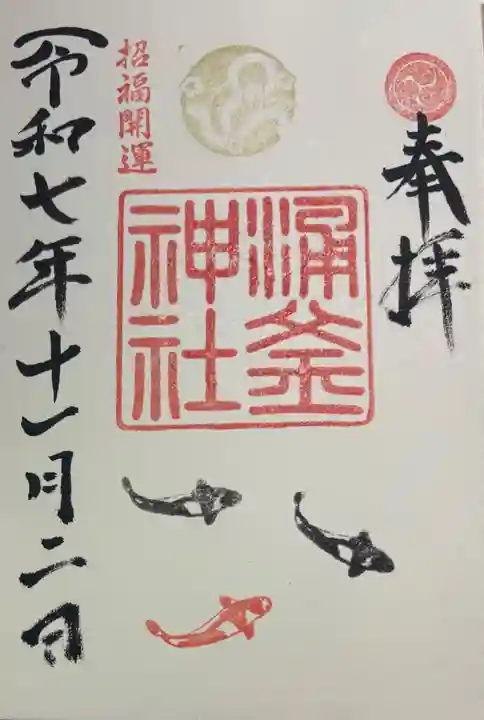 奉拝
涌釜
神社
招福開運
令和七年十一月二日